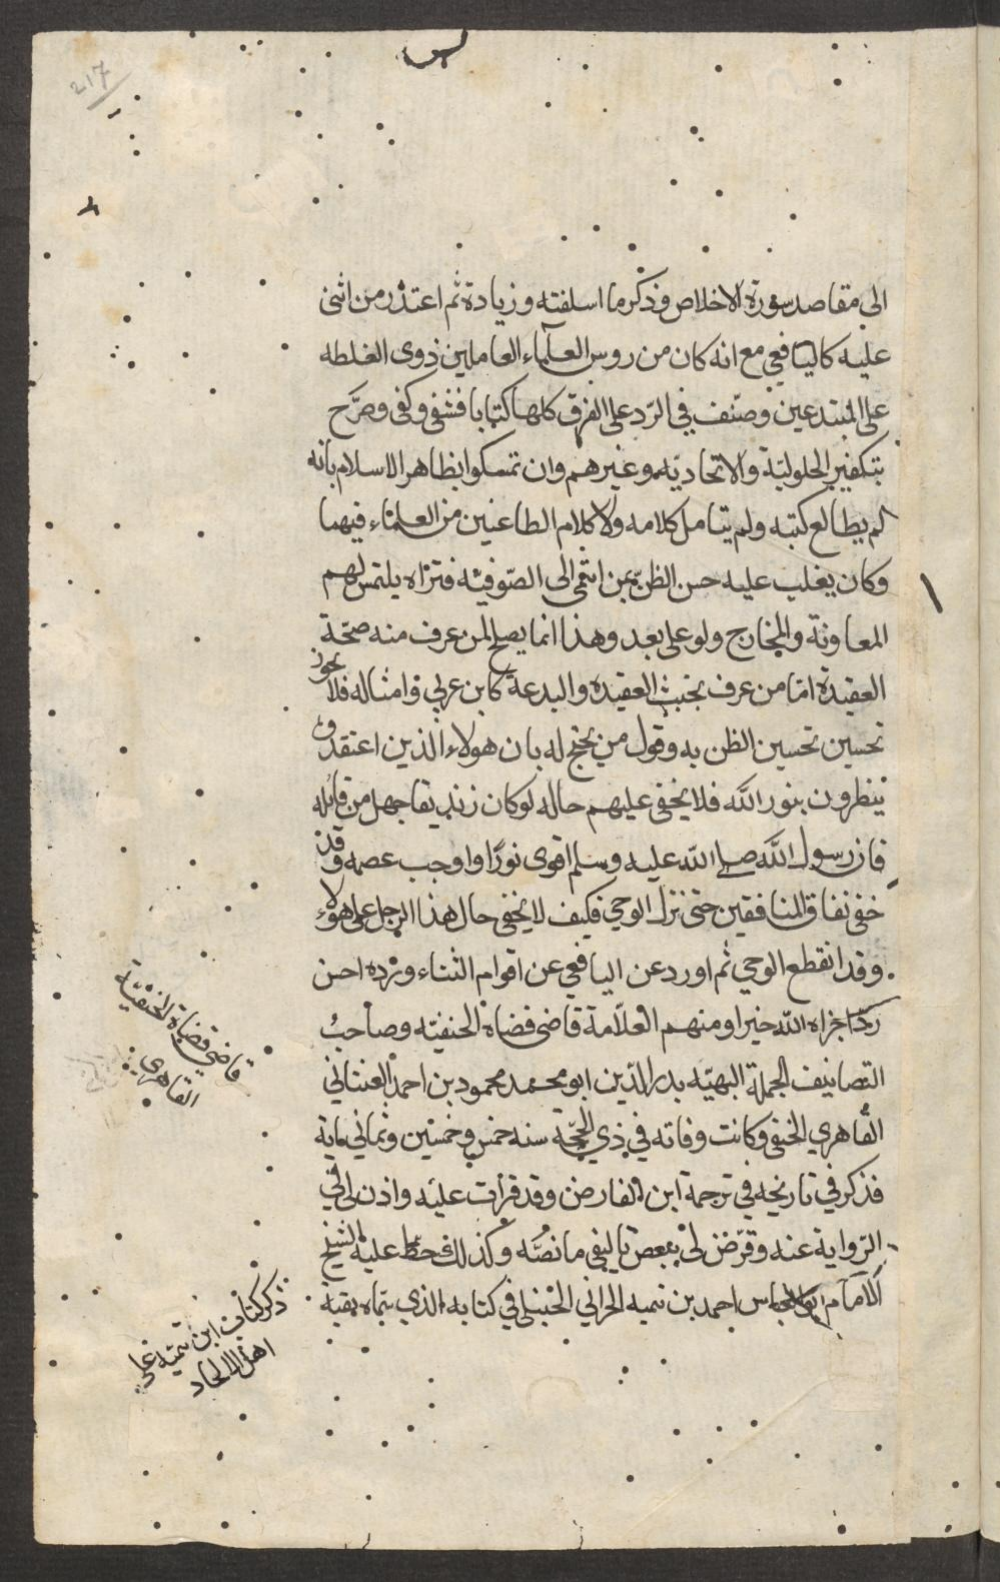 217
الى مقاصد سورة الاخلاص وذكر ما اسلفته وزيادة ثم اعتذر من اثنى
عليه كاليافعي مع انه كان من روس العلماء العاملين ذوى الغلظه
على المبتدعين وصنف في الرد على الفرق كلها كتابا فشفى وكفى وصرّح
بتكفير الحلولية والاتحاديه وغيرهم وان تمسكوا بظاهر الاسلام بانه
لم يطالع كتبه ولم يتامل كلامه ولا كلام الطاعنين من العلماء فيهما
وكان يغلب عليه حسن الظن بمن انتمى الى الصوفيه فتراه يلتمس لهم
المعاونة والمخارج ولو على بعد وهذا انما يصح لمن عرف منه صحة
العقيدة امّا من عرف بخبث العقيده والبدعة كابن عربي وامثاله فلا يجوز
تحسين تحسين الظن به وقول من يحتج له بان هولاء الذين اعتقدوه
ينظرون بنور الله فلا يخفى عليهم حاله لو كان زنديقا جهل من قائله
فان رسول الله صلى الله عليه وسلم اقوى نورًا واوجب عصمه وقد
خفى نفاق المنافقين حتى نزل الوحي فكيف لا يخفى حال هذا الرجل على هولاء
وقد انقطع الوحي ثم اورد عن اليافعي عن اقوام الثناء ورده احسن
ردّ جزاه الله خيرا ومنهم العلّامة قاضى قضاة الحنفيه وصاحبُ
التصانيف الجملة البهيّه بدر الدين ابو محمد محمود بن احمد العنتابي
القاهري الحنفى وكانت وفاته في ذي الحجّة سنه خمس وخمسين وثماني ماية
فذكر في تاريخه في ترجمة ابن الفارض وقد قرات عليه واذن لى في
الرواية عنه وقرّض لى بعض تاليفى ما نصُّه وكذلك حط عليه الشيخ
الامام ابو العباس احمد بن تيميه الحراني الحنبلى في كتابه الذي سماه بغية
قاضي قضاة الحنفيّة
القاهري
ذكر كتاب ابن تيميه على
اهل الالحاد